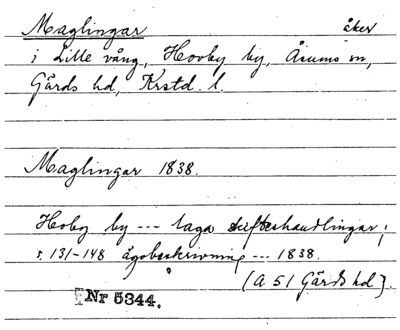 Maglingar åker
i Lille vång, Hovby by, Åsums sn,
Gärds hd, Krstd. l.
Maglingar 1838.
Hoby by --- laga skifteshandlingar;
s. 131-148 ägobeskrivning --- 1838.
(A 51 Gärds hd).
Nr 5344.